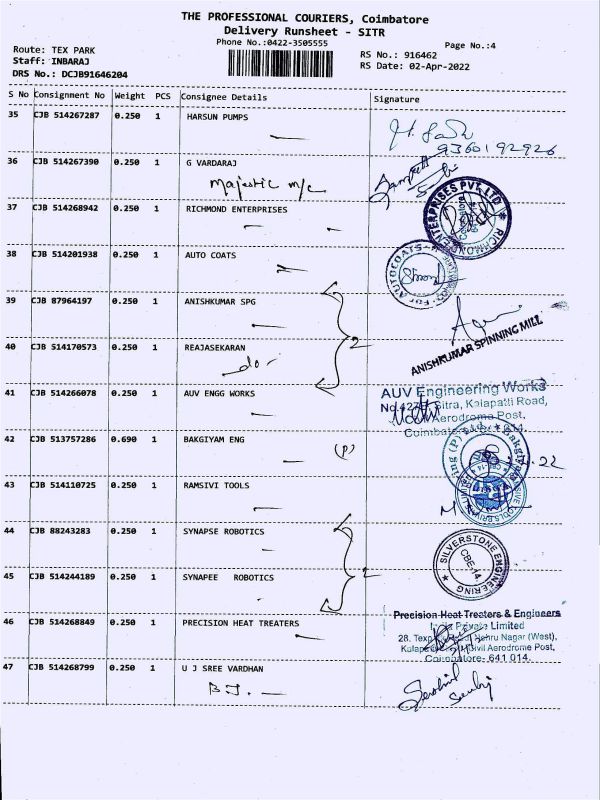 THE PROFESSIONAL COURIERS, Coimbatore
Delivery Runsheet - SITR
Phone No.:0422-3505555
Page No.:4
Route: TEX PARK
Staff: INBARAJ
DRS No.: DCJB91646204
RS No.: 916462
RS Date: 02-Apr-2022
S No Consignment No Weight PCS Consignee Details Signature
35 CJB 514267287 0.250 1 HARSUN PUMPS
9360192926
36 CJB 514267390 0.250 1 G VARDARAJ
Majestic m/c
37 CJB 514268942 0.250 1 RICHMOND ENTERPRISES
RICHMOND ENTERPRISES PVT LTD
38 CJB 514201938 0.250 1 AUTO COATS
FOR AUTOCOATS
39 CJB 87964197 0.250 1 ANISHKUMAR SPG
2
ANISHKUMAR SPINNING MILL
40 CJB 514170573 0.250 1 REAJASEKARAN
do
41 CJB 514266078 0.250 1 AUV ENGG WORKS
AUV Engineering Works
Sitra, Kalapatti Road,
Aerodrome Post,
42 CJB 513757286 0.690 1 BAKGIYAM ENG
(P)
22
43 CJB 514110725 0.250 1 RAMSIVI TOOLS
44 CJB 88243283 0.250 1 SYNAPSE ROBOTICS
2
SILVERSTONE ENGINEERING
CBE-14
45 CJB 514244189 0.250 1 SYNAPEE ROBOTICS
46 CJB 514268849 0.250 1 PRECISION HEAT TREATERS
Precision Heat Treaters & Engineers
Private Limited
28. Nehru Nagar (West),
Civil Aerodrome Post,
Coimbatore- 641 014.
47 CJB 514268799 0.250 1 U J SREE VARDHAN
B.J.